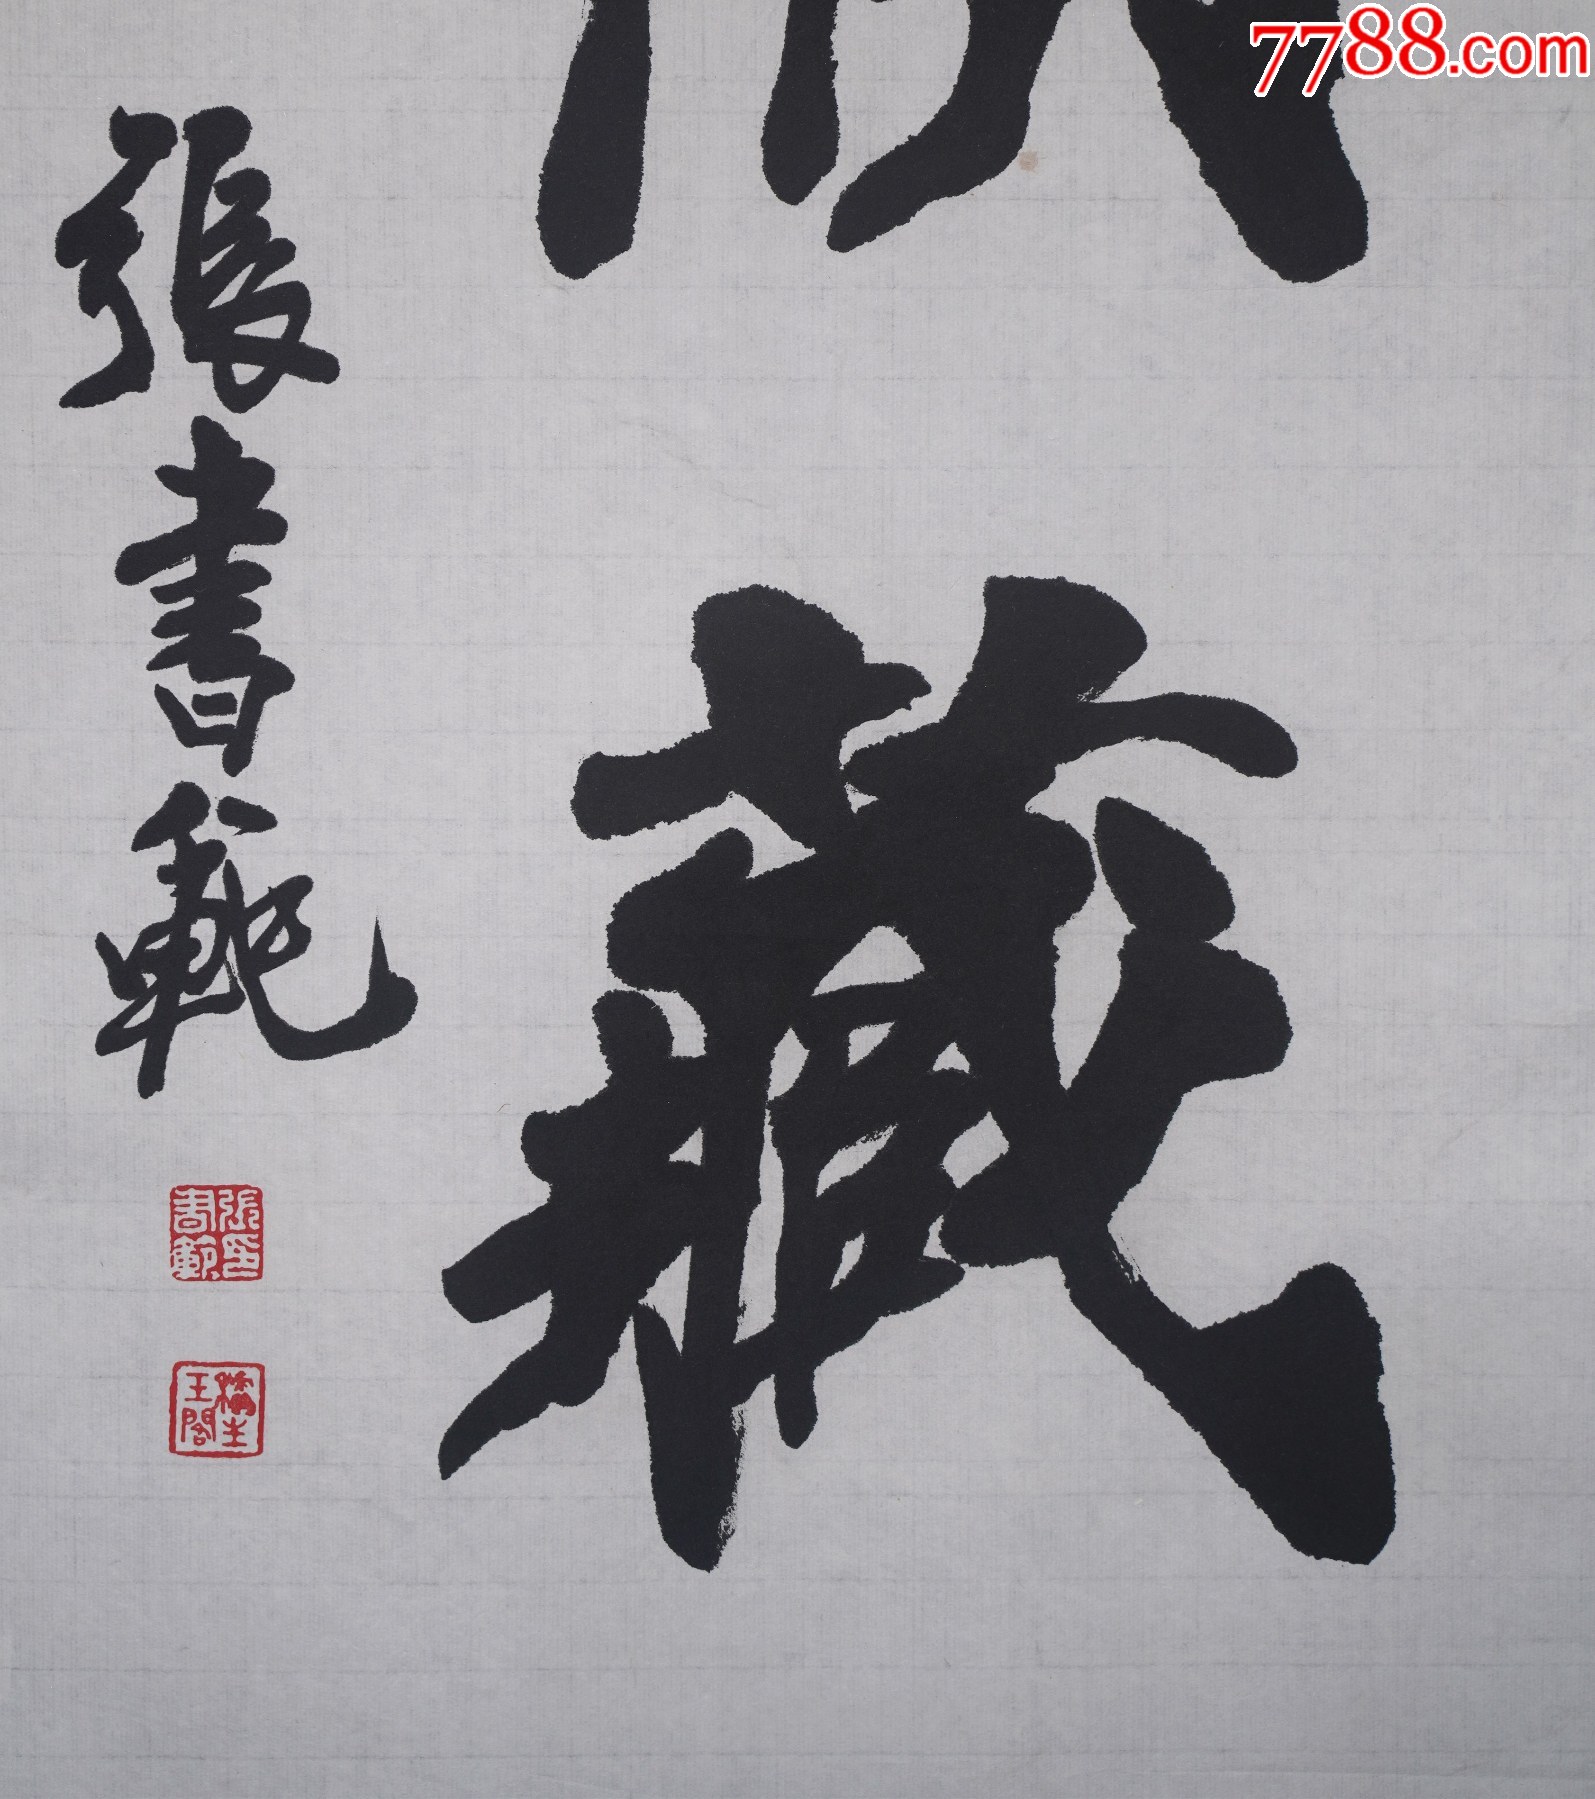 7788.com
藏
張書範
張書範印